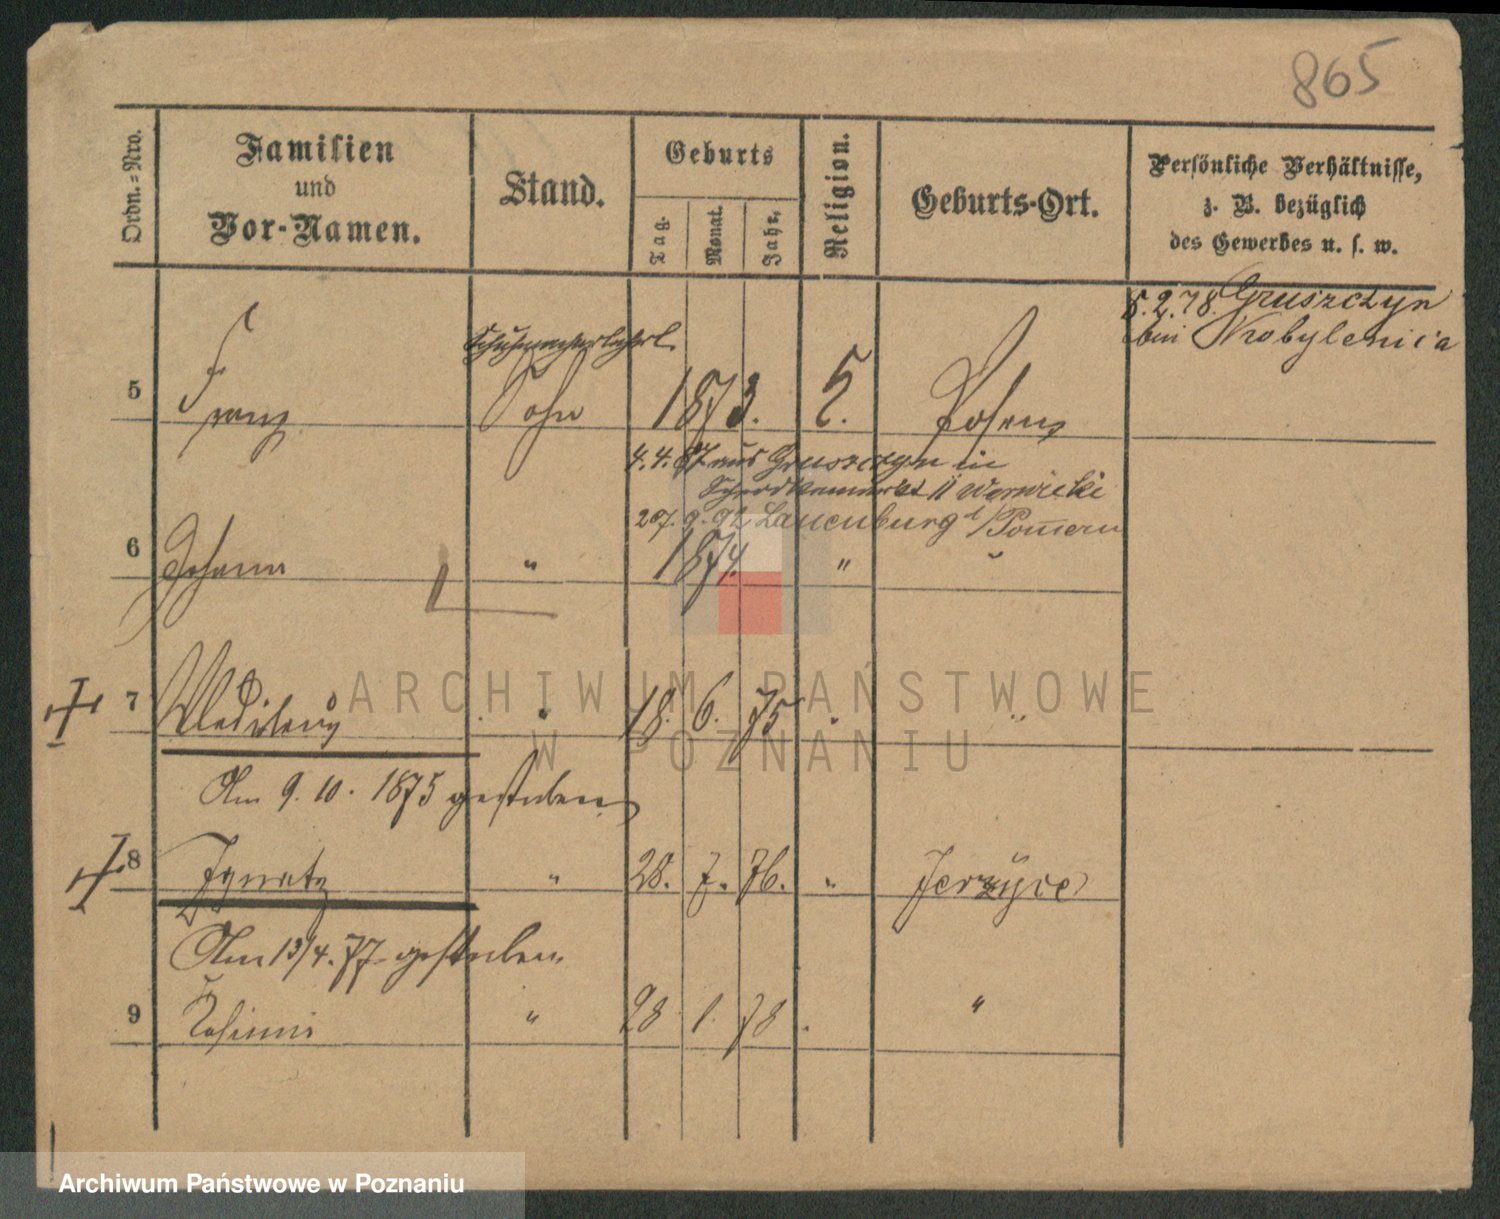 865
Ordn.-Nro.
Familien
und
Vor-Namen.
Stand.
Geburts
Tag.
Monat.
Jahr.
Religion.
Geburts-Ort.
Persönliche Verhältnisse,
z. B. bezüglich
des Gewerbes u. s. w.
5.2.78. Gruszczyn
bei Kobylenica
Schuhmacherlehrl.
5 Franz Sohn 1873. Posen
4.4.87 aus Gruszczyn in
II Warnicki
27.9.92 Lauenburg i/Pomern
6 Johann " 1874. " "
7 Wladislaus " 18. 6. 75 " "
Am 9. 10. 1875 gestorben
8 Ignatz " 28. 7. 76. " Jerzyce
Am 13/4. 77 gestorben
9 Casimir " 28 1. 78 "
ARCHIWUM PAŃSTWOWE
W POZNANIU
Archiwum Państwowe w Poznaniu